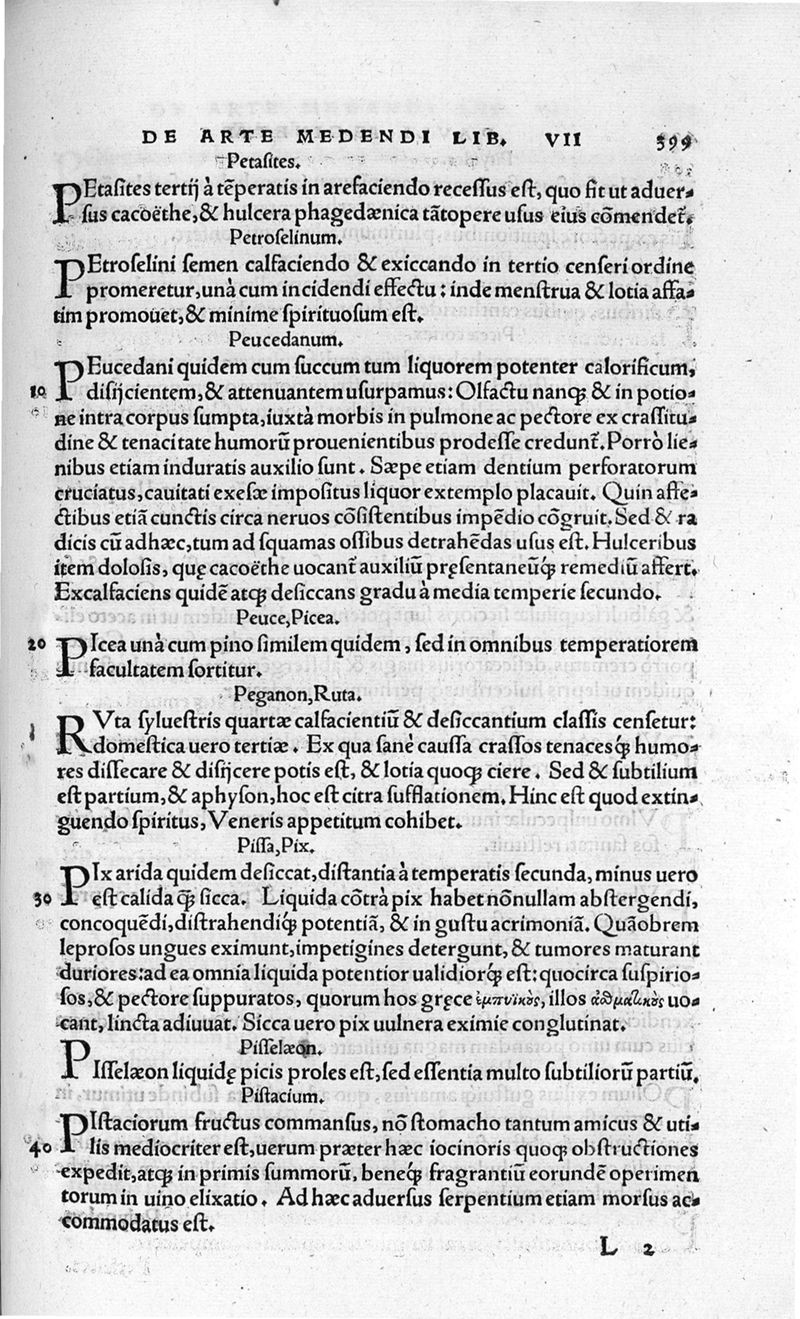 DE ARTE MEDENDI LIB. VII 399
Petasites.
PEtasites tertij à tẽperatis in arefaciendo recessus est, quo fit ut aduer-
sus cacoëthe, & hulcera phagedænica tãtopere usus eius cõmendet̃.
Petroselinum.
PEtroselini semen calfaciendo & exiccando in tertio censeri ordine
promeretur, unà cum incidendi effectu: inde menstrua & lotia affa-
tim promouet, & minime spirituosum est.
Peucedanum.
PEucedani quidem cum succum tum liquorem potenter calorificum,
10 disijcientem, & attenuantem usurpamus: Olfactu nanq; & in potio-
ne intra corpus sumpta, iuxtà morbis in pulmone ac pectore ex crassitu-
dine & tenacitate humorũ prouenientibus prodesse credunt̃. Porrò lie-
nibus etiam induratis auxilio sunt. Sæpe etiam dentium perforatorum
cruciatus, cauitati exesæ impositus liquor extemplo placauit. Quin affe-
ctibus etiã cunctis circa neruos cõsistentibus impẽdio cõgruit. Sed & ra
dicis cũ adhæc, tum ad squamas ossibus detrahẽdas usus est. Hulceribus
item dolosis, quę cacoëthe uocant̃ auxiliũ pręsentaneũq; remediũ affert.
Excalfaciens quidẽ atq; desiccans gradu à media temperie secundo.
Peuce, Picea.
20 PIcea unà cum pino similem quidem, sed in omnibus temperatiorem
facultatem sortitur.
Peganon, Ruta.
RVta syluestris quartæ calfacientiũ & desiccantium classis censetur:
domestica uero tertiæ. Ex qua sanè caussa crassos tenacesq; humo-
res dissecare & disijcere potis est, & lotia quoq; ciere. Sed & subtilium
est partium, & aphyson, hoc est citra sufflationem. Hinc est quod extin-
guendo spiritus, Veneris appetitum cohibet.
Pissa, Pix.
PIx arida quidem desiccat, distantia à temperatis secunda, minus uero
30 est calida q̃; sicca. Liquida cõtrà pix habet nõnullam abstergendi,
concoquẽdi, distrahendiq; potentiã, & in gustu acrimoniã. Quãobrem
leprosos ungues eximunt, impetigines detergunt, & tumores maturant
duriores: ad ea omnia liquida potentior ualidiorq; est: quocirca suspirio-
sos, & pectore suppuratos, quorum hos gręce ἐμπυϊκὸς, illos ἀσθματικὸς uo-
cant, lincta adiuuat. Sicca uero pix uulnera eximie conglutinat.
Pisselæon.
PIsselæon liquidę picis proles est, sed essentia multo subtiliorũ partiũ.
Pistacium.
PIstaciorum fructus commansus, nõ stomacho tantum amicus & uti-
40 lis mediocriter est, uerum præter hæc iocinoris quoq; obstructiones
expedit, atq; in primis summorũ, beneq; fragrantiũ eorundẽ operimen
torum in uino elixatio. Ad hæc aduersus serpentium etiam morsus ac-
commodatus est.
L 2